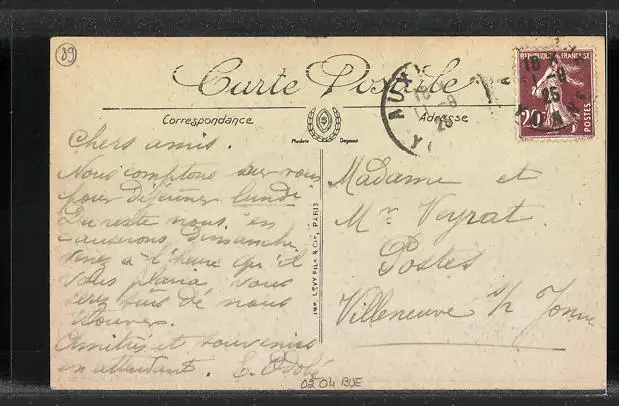 89
Carte Postale
Correspondance
Adresse
Modèle Déposé
REPUBLIQUE FRANÇAISE
20c
POSTES
AUX
18
9
25
Chers amis.
Nous comptons sur vous
pour déjeuner lundi
Du reste nous en
causerons dimanche
venez à l'heure qu'il
vous plaira vous
serez sûrs de nous
trouver.
Amitiés et souvenirs
en attendant. E.
IMP. LEVY FILS & Cie, PARIS
Madame et
Mr Veyrat
Postes
Villeneuve s/ Yonne
02 04 BUE